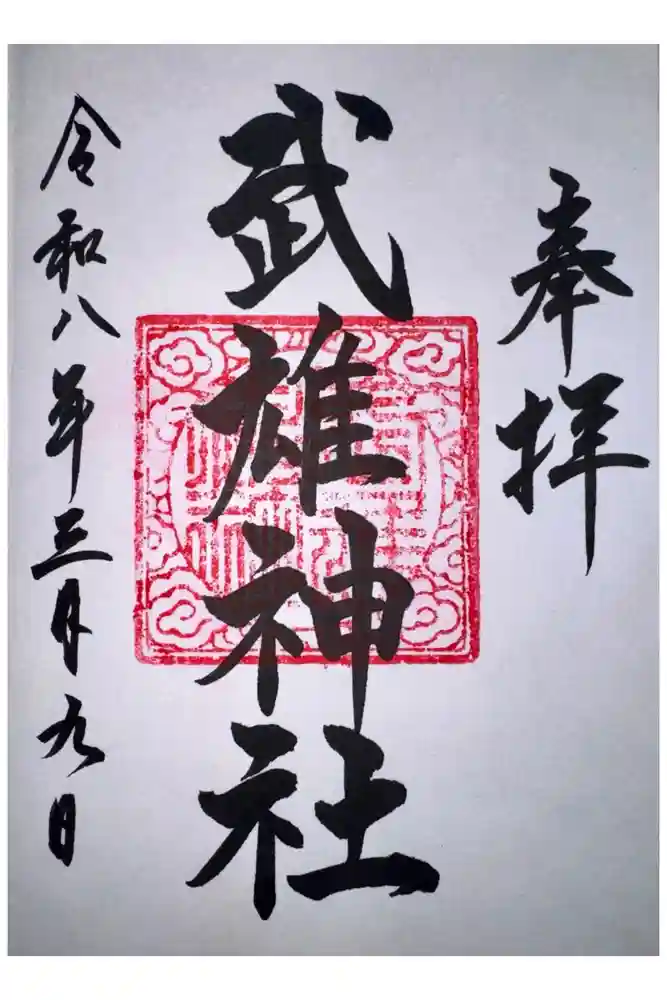 奉拝
武雄神社
令和八年三月九日